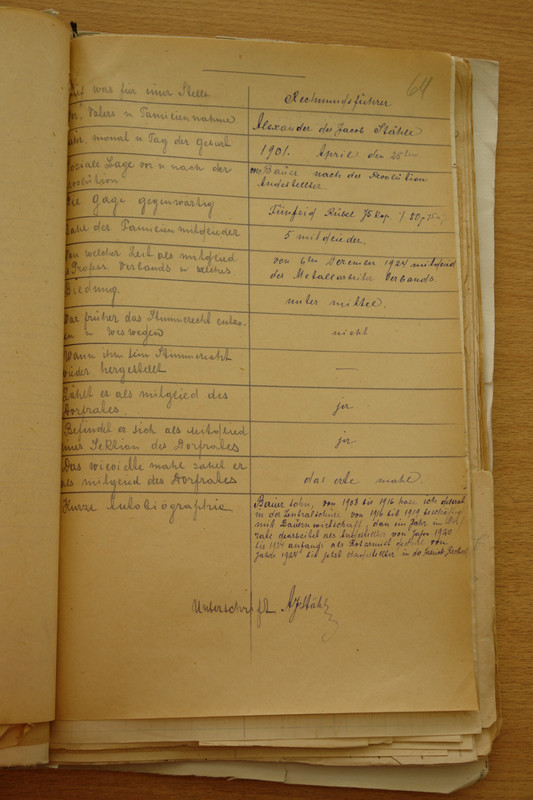 64
was für einer Stelle
Rechnungsführer
Vaters u Familiennahme
Alexander des Jacob Stähle
monat u Tag der geburt
1901. April den 25ten
soziale Lage vor u nach der
Revolution
Bauer nach der Revolution
Andestellter.
Die Gage gegenwärtig
Fünfzig Rubel 75 Kop.
der Familien mitglieder
5 mitglieder.
Von welcher Zeit als mitglied
des Profess. Verbands u welches
von 6ten Dezember 1924 mitglied
des Metallarbeiter Verbands.
Bildung.
unter mittel.
War früher das Stimmrecht entzo-
en u weswegen
nicht
Wann ihm sein Stimmrecht
wieder hergestellt
—
Zählt er als mitglied des
Dorfrates.
ja
Befindet er sich als Mitglied
einer Sektion des Dorfrates
ja
Das wievielte mahl zählt er
als mitglied des Dorfrates
das erte mahl.
Kurze Autobiographie
Bauer sohn, von 1908 bis 1916 habe ich
in der Zentralschule von 1916 bis 1919 beschäftig
mit Bauernwirtschaft, dan ein Jahr im
als von Jahre 1920
bis 1924 anfangs als Rotarmist von
Jahre 1924 bis jetzt
Unterschrift AJStähle